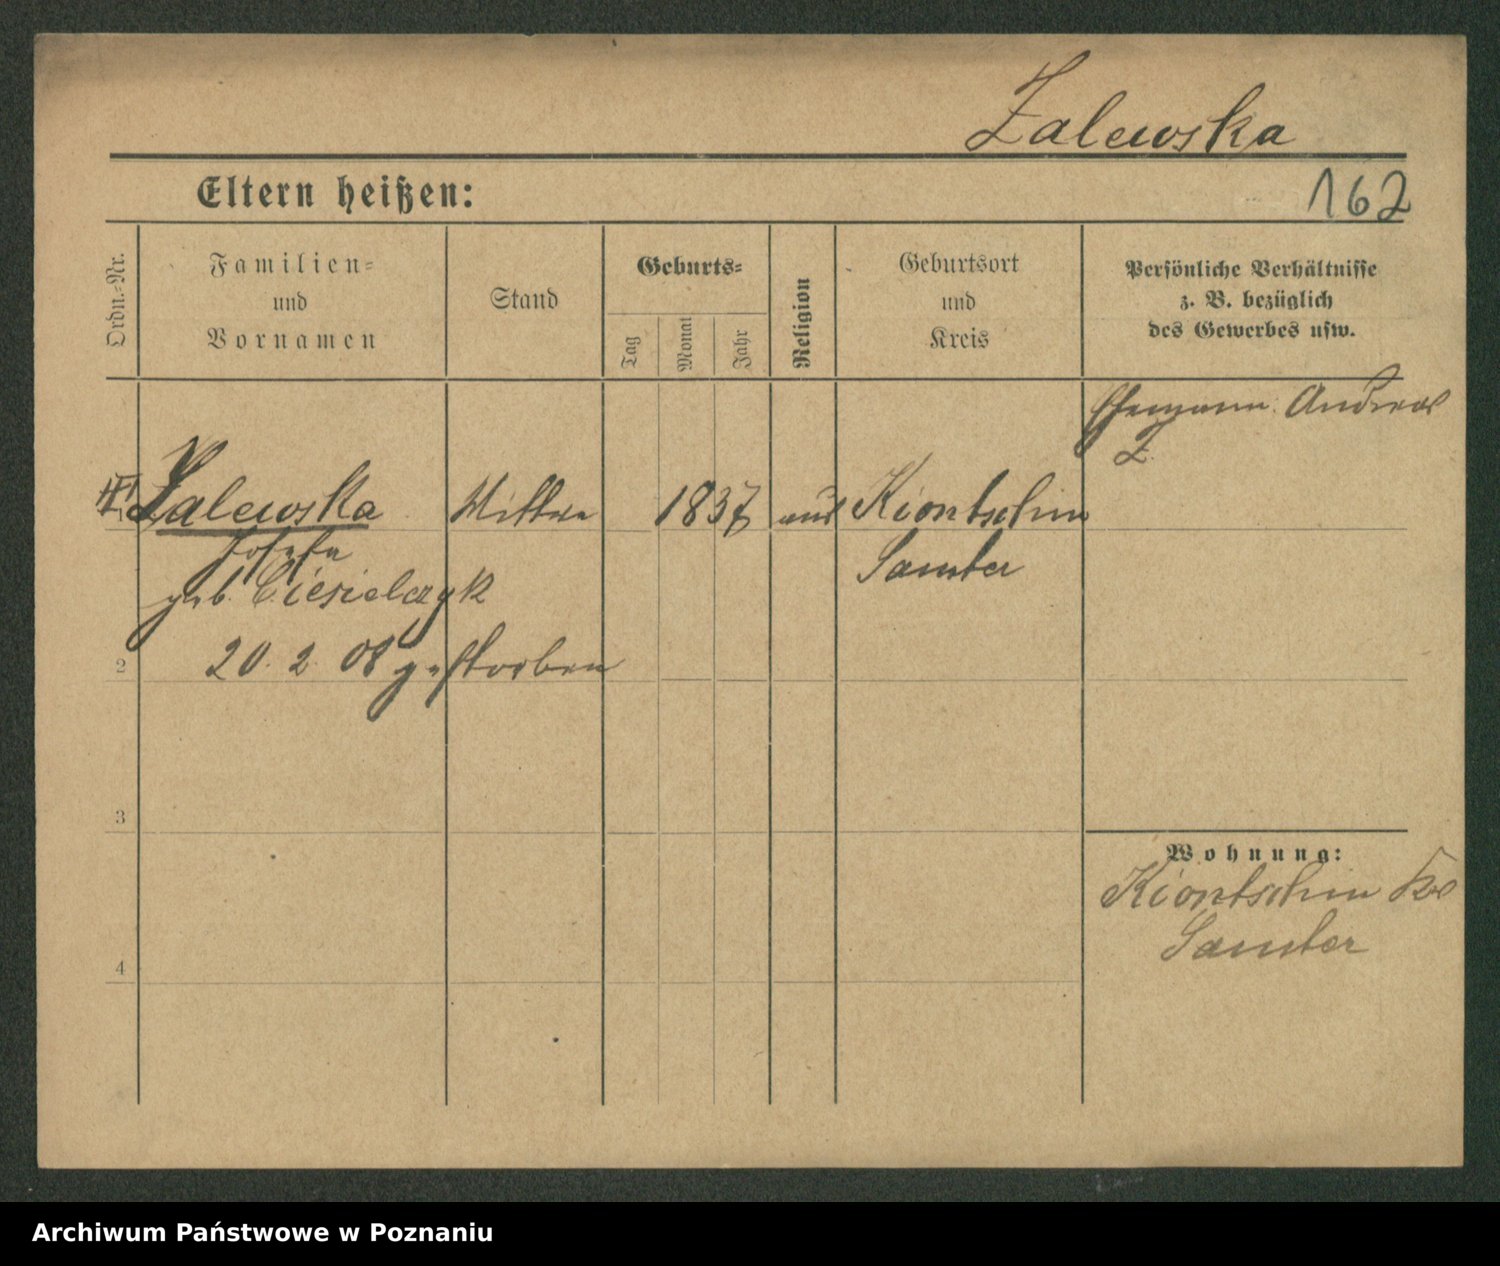 Zalewska
Eltern heißen:
162
Ordn.-Nr.
Familien-
und
Vornamen
Stand
Geburts-
Tag
Monat
Jahr
Religion
Geburtsort
und
Kreis
Persönliche Verhältnisse
z. B. bezüglich
des Gewerbes usw.
Ehemann: Andreas
Z.
Zalewska
Josefa
geb. Ciesielczyk
20. 2. 08 gestorben
1837
aus Kiontschin
Samter
2
3
4
Wohnung:
Kiontschin
Samter
Archiwum Państwowe w Poznaniu